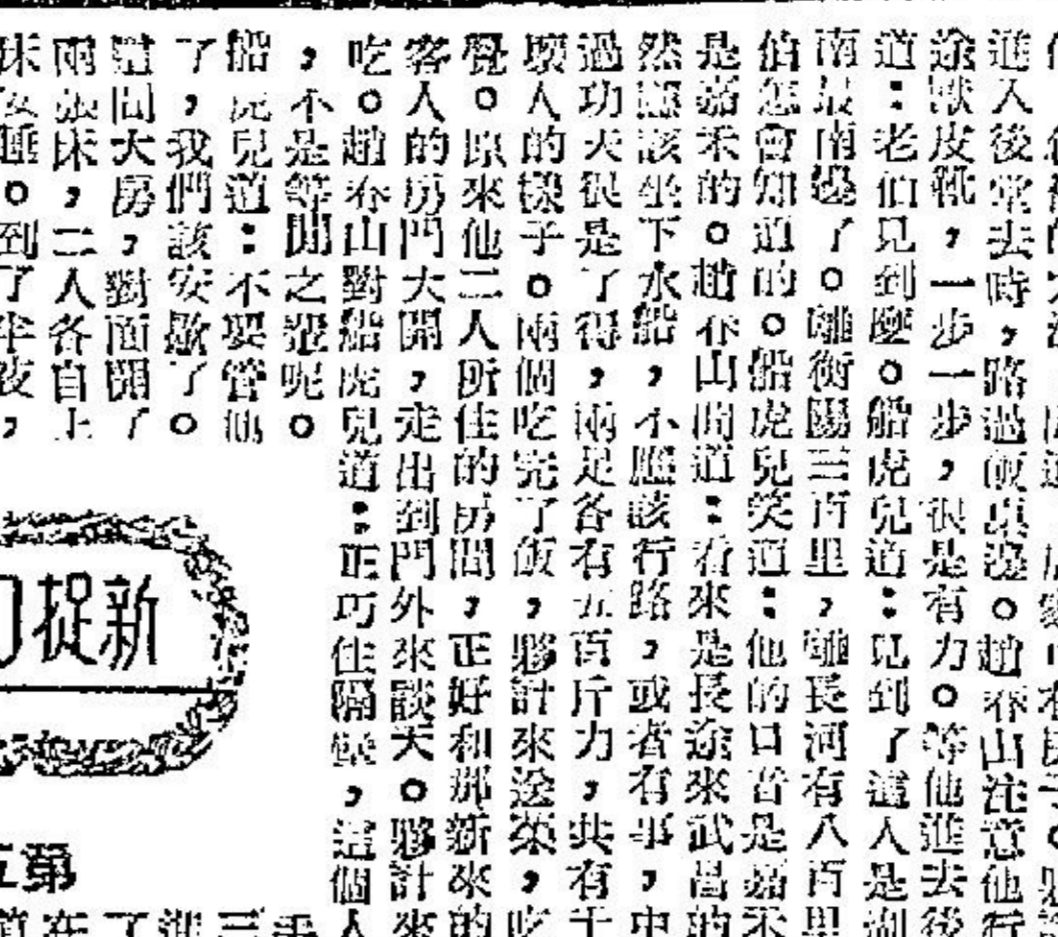 進入後堂去時，路過飯桌邊。趙夲山注意他行
途獸皮靴，一步一步，很是有力。等他進去後
道：老伯見到麼。船虎兒道：見到了這人是湖
南最南邊了。離衡陽三百里，離長河有八百里
伯怎會知道的。船虎兒笑道：他的口音是嘉禾
是嘉禾的。趙夲山問道：看來是長途來武昌的
然應該坐下水船，不應該行路，或者有事，中
過功夫很是了得，兩足各有五百斤力，共有千
壞人的樣子。兩個吃完了飯，夥計來送菜，吃
覺。原來他二人所住的房間，正好和那新來的
客人的房門大開，走出到門外來談天。夥計來
吃。趙夲山對船虎兒道：正巧住隔壁，這個人
，不是等閒之輩呢。
船虎兒道：不要管他
了，我們該安歇了。
間大房，對面開了
兩張床，二人各自上
床安睡。到了半夜，
新捉
第
三
湖
了
在